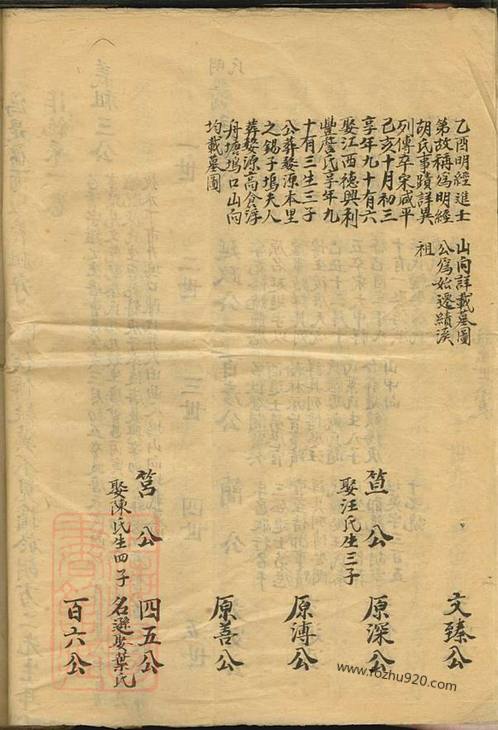 乙酉明經進士
第故稱爲明經
胡氏事蹟詳異
列傅卒宋咸平
己亥十月初三
享年九十有六
娶江西德興利
豐詹氏享年九
十有三生三子
公葬婺源本里
之錫子塢夫人
葬婺源高倉浮
舟塘塢口山向
均載墓圖
山向詳載墓圖
公爲始遷績溪
祖
文臻公
笪公
娶汪氏生三子
原深公
原溥公
原善公
筥公
娶陳氏生四子
四五公
名遜娶葉氏
百六公
www.rozhu920.com